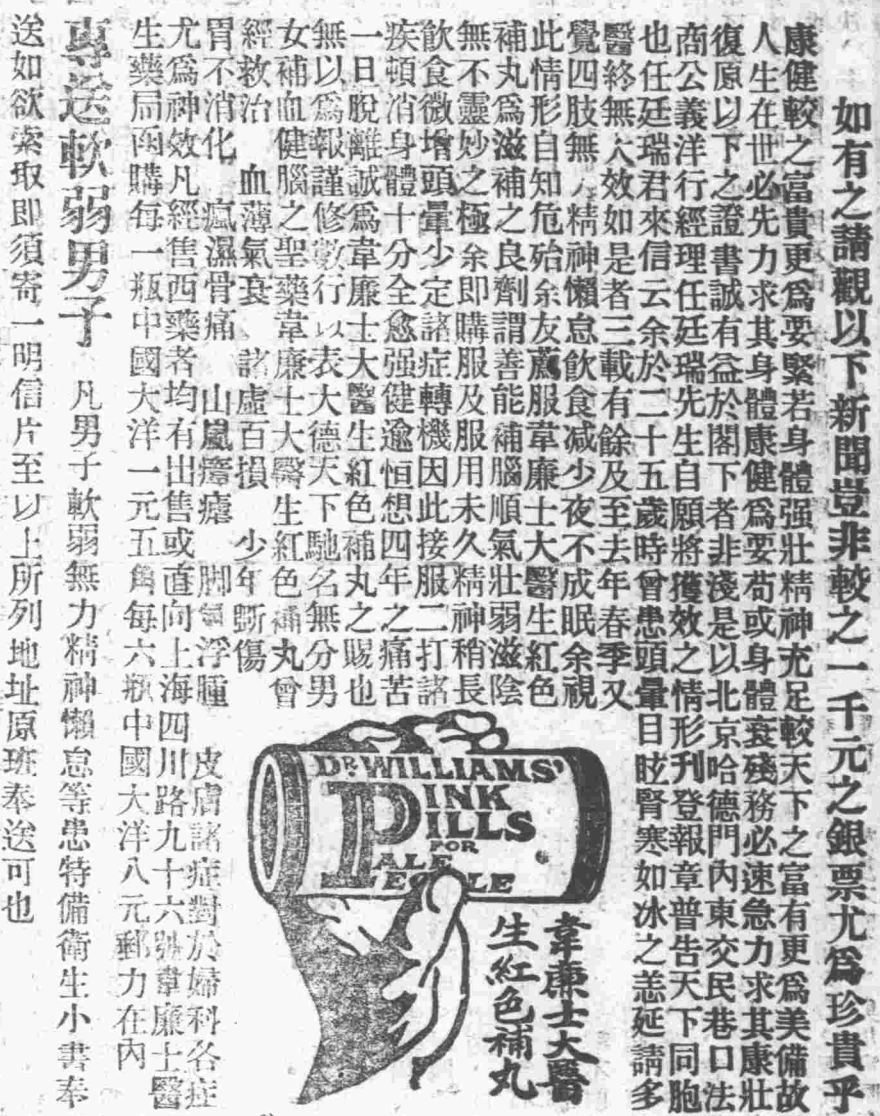 如有之請觀以下新聞豈非較之一千元之銀票尤爲珍貴乎
康健較之富貴更爲要緊若身體强壯精神充足較天下之富有更爲美備故
人生在世必先力求其身體康健爲要苟或身體衰殘務必速急力求其康壯
復原以下之證書誠有益於閣下者非淺是以北京哈德門內東交民巷口法
商公義洋行經理任廷瑞先生自願將獲效之情形刊登報章普告天下同胞
也任廷瑞君來信云余於二十五歲時曾患頭暈目眩腎寒如冰之恙延請多
醫終無大效如是者三載有餘及至去年春季又
覺四肢無力精神懶怠飲食减少夜不成眠余視
此情形自知危殆余友薦服韋廉士大醫生紅色
補丸爲滋補之良劑謂善能補腦順氣壯弱滋陰
無不靈妙之極余即購服及服用未久精神稍長
飲食微增頭暈少定諸症轉機因此接服二打諸
疾頓消身體十分全愈强健逾恒想四年之痛苦
一日脫離誠爲韋廉士大醫生紅色補丸之賜也
無以爲報謹修數行以表大德天下馳名無分男
女補血健腦之聖藥韋廉士大醫生紅色補丸曾
經救治 血薄氣衰 諸虛百損 少年斲傷
胃不消化 瘋濕骨痛 山嵐瘴瘧 脚氣浮腫 皮膚諸症對於婦科各症
尤爲神效凡經售西藥者均有出售或直向上海四川路九十六號韋廉士醫
生藥局函購每一瓶中國大洋一元五角每六瓶中國大洋八元郵力在內
專送軟弱男子 凡男子軟弱無力精神懶怠等患特備衛生小書奉
送如欲索取即須寄一明信片至以上所列地址原班奉送可也
DR. WILLIAMS'
PINK
PILLS
FOR
PALE
PEOPLE
韋廉士大醫
生紅色補丸